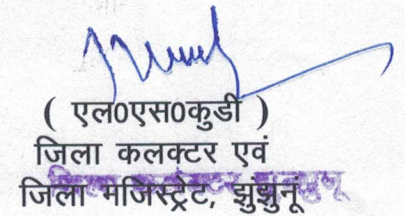 ( एल0एस0कुडी )
जिला कलक्टर एवं
जिला मजिस्ट्रेट, झुझुनूं